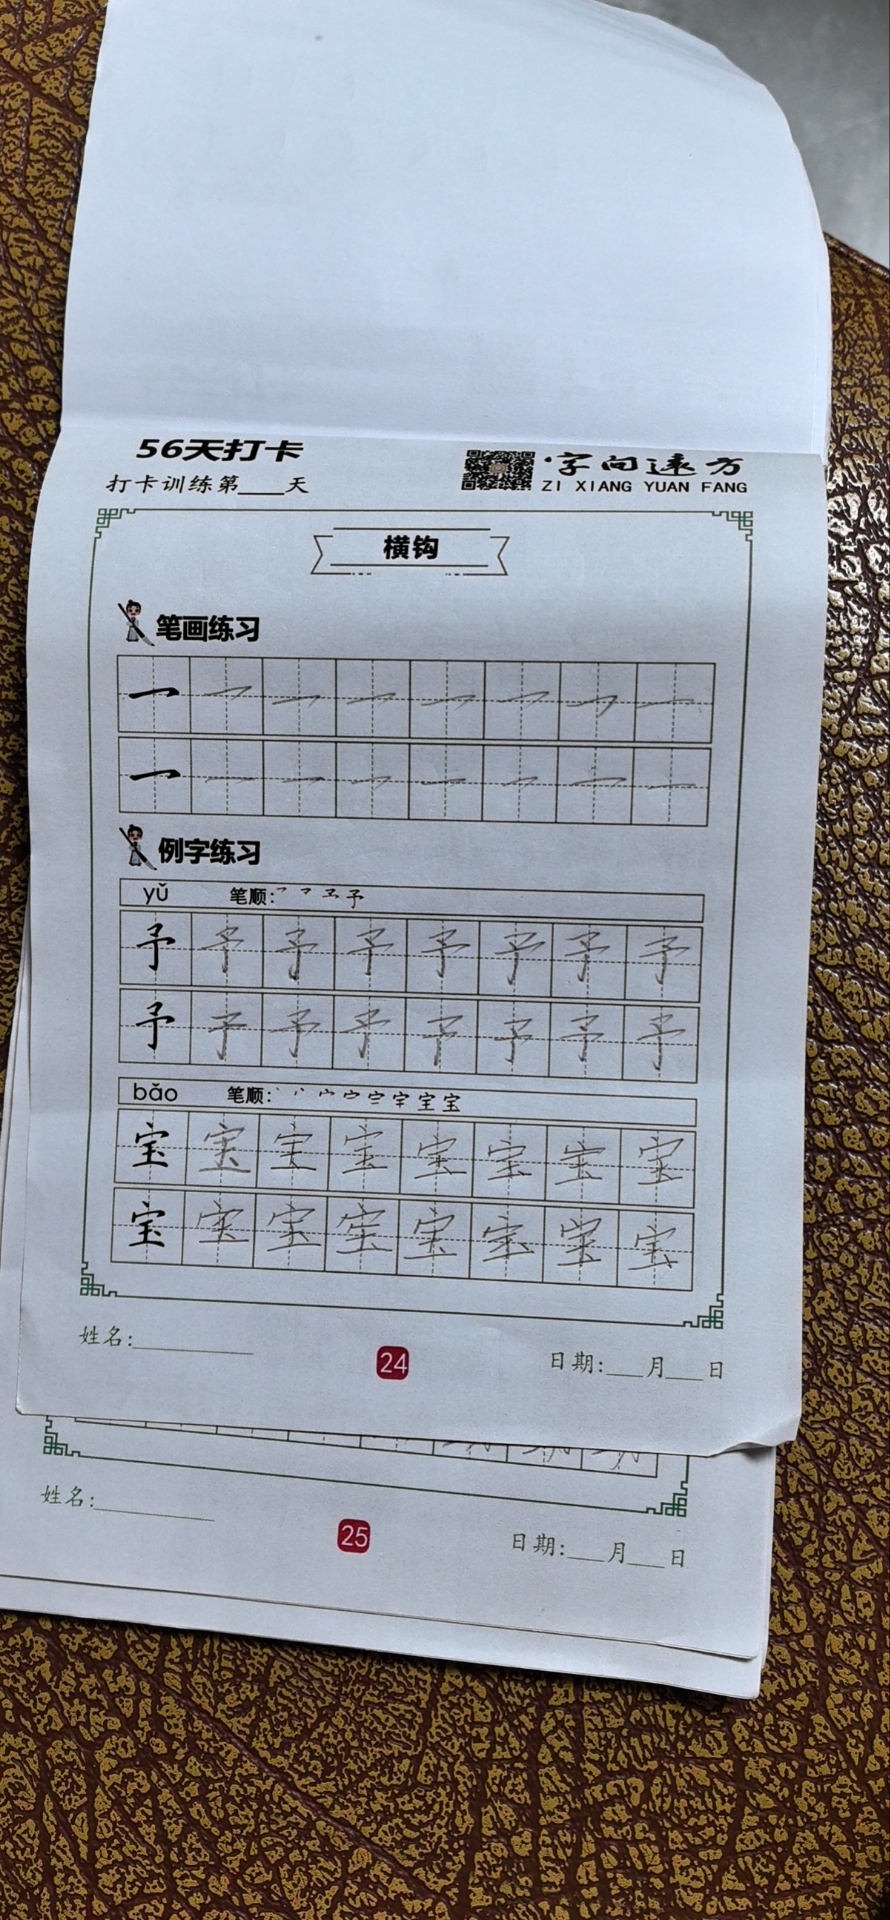 56天打卡
打卡训练第___天
字向远方
ZI XIANG YUAN FANG
横钩
笔画练习
例字练习
yǔ 笔顺: 予
予 予 予 予 予 予 予 予
予 予 予 予 予 予 予 予
bǎo 笔顺: 宝
宝 宝 宝 宝 宝 宝 宝 宝
宝 宝 宝 宝 宝 宝 宝 宝
姓名:________ 24 日期:___月___日
姓名:________ 25 日期:___月___日